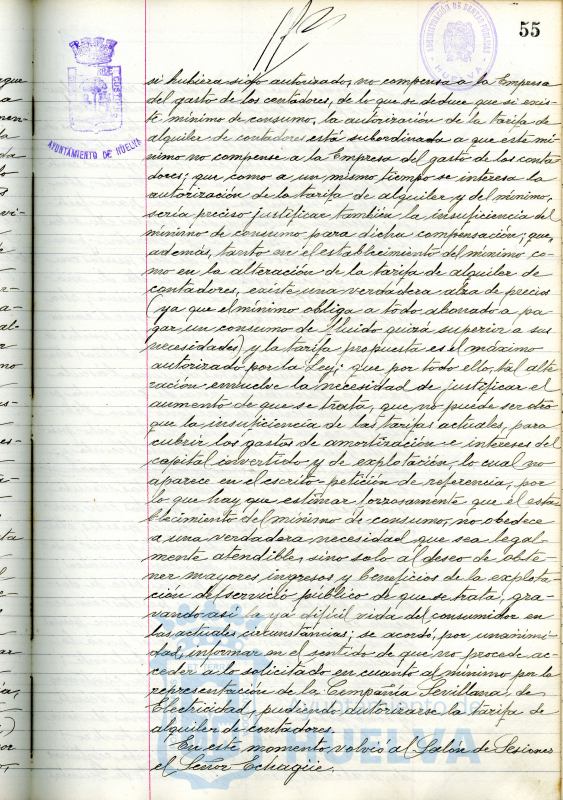 55
ADMINISTRACIÓN DE RENTAS PÚBLICAS
HUELVA
AYUNTAMIENTO DE HUELVA
si hubiera sido autorizado, no compensa a la Empresa
del gasto de los contadores, de lo que se deduce que si exis-
te mínimo de consumo, la autorización de la tarifa de
alquiler de contadores está subordinada a que este mí-
nimo no compense a la Empresa del gasto de los conta-
dores; que como a un mismo tiempo se interesa la
autorización de la tarifa de alquiler y del mínimo,
sería preciso justificar también la insuficiencia del
mínimo de consumo para dicha compensación; que,
además, tanto en el establecimiento del mínimo co-
mo en la alteración de la tarifa de alquiler de
contadores, existe una verdadera alza de precios
(ya que el mínimo obliga a todo abonado a pa-
gar un consumo de fluido quizá superior a sus
necesidades) y la tarifa propuesta es el máximo
autorizado por la Ley; que por todo ello, tal alte-
ración envuelve la necesidad de justificar el
aumento de que se trata, que no puede ser otro
que la insuficiencia de las tarifas actuales, para
cubrir los gastos de amortización e intereses del
capital invertido y de explotación, lo cual no
aparece en el escrito-petición de referencia, por
lo que hay que estimar forzosamente que el esta-
blecimiento del mínimo de consumo, no obedece
a una verdadera necesidad que sea legal-
mente atendible, sino solo al deseo de obte-
ner mayores ingresos y beneficios de la explota-
ción del servicio público de que se trata, gra-
vando así la ya difícil vida del consumidor en
las actuales circunstancias; se acordó, por unanimi-
dad, informar en el sentido de que no procede ac-
ceder a lo solicitado en cuanto al mínimo por la
representación de la Compañía Sevillana de
Electricidad, pudiendo autorizarse la tarifa de
alquiler de contadores.
En este momento volvió al Salón de Sesiones
el Señor Echagüe.
Ayuntamiento de
HUELVA